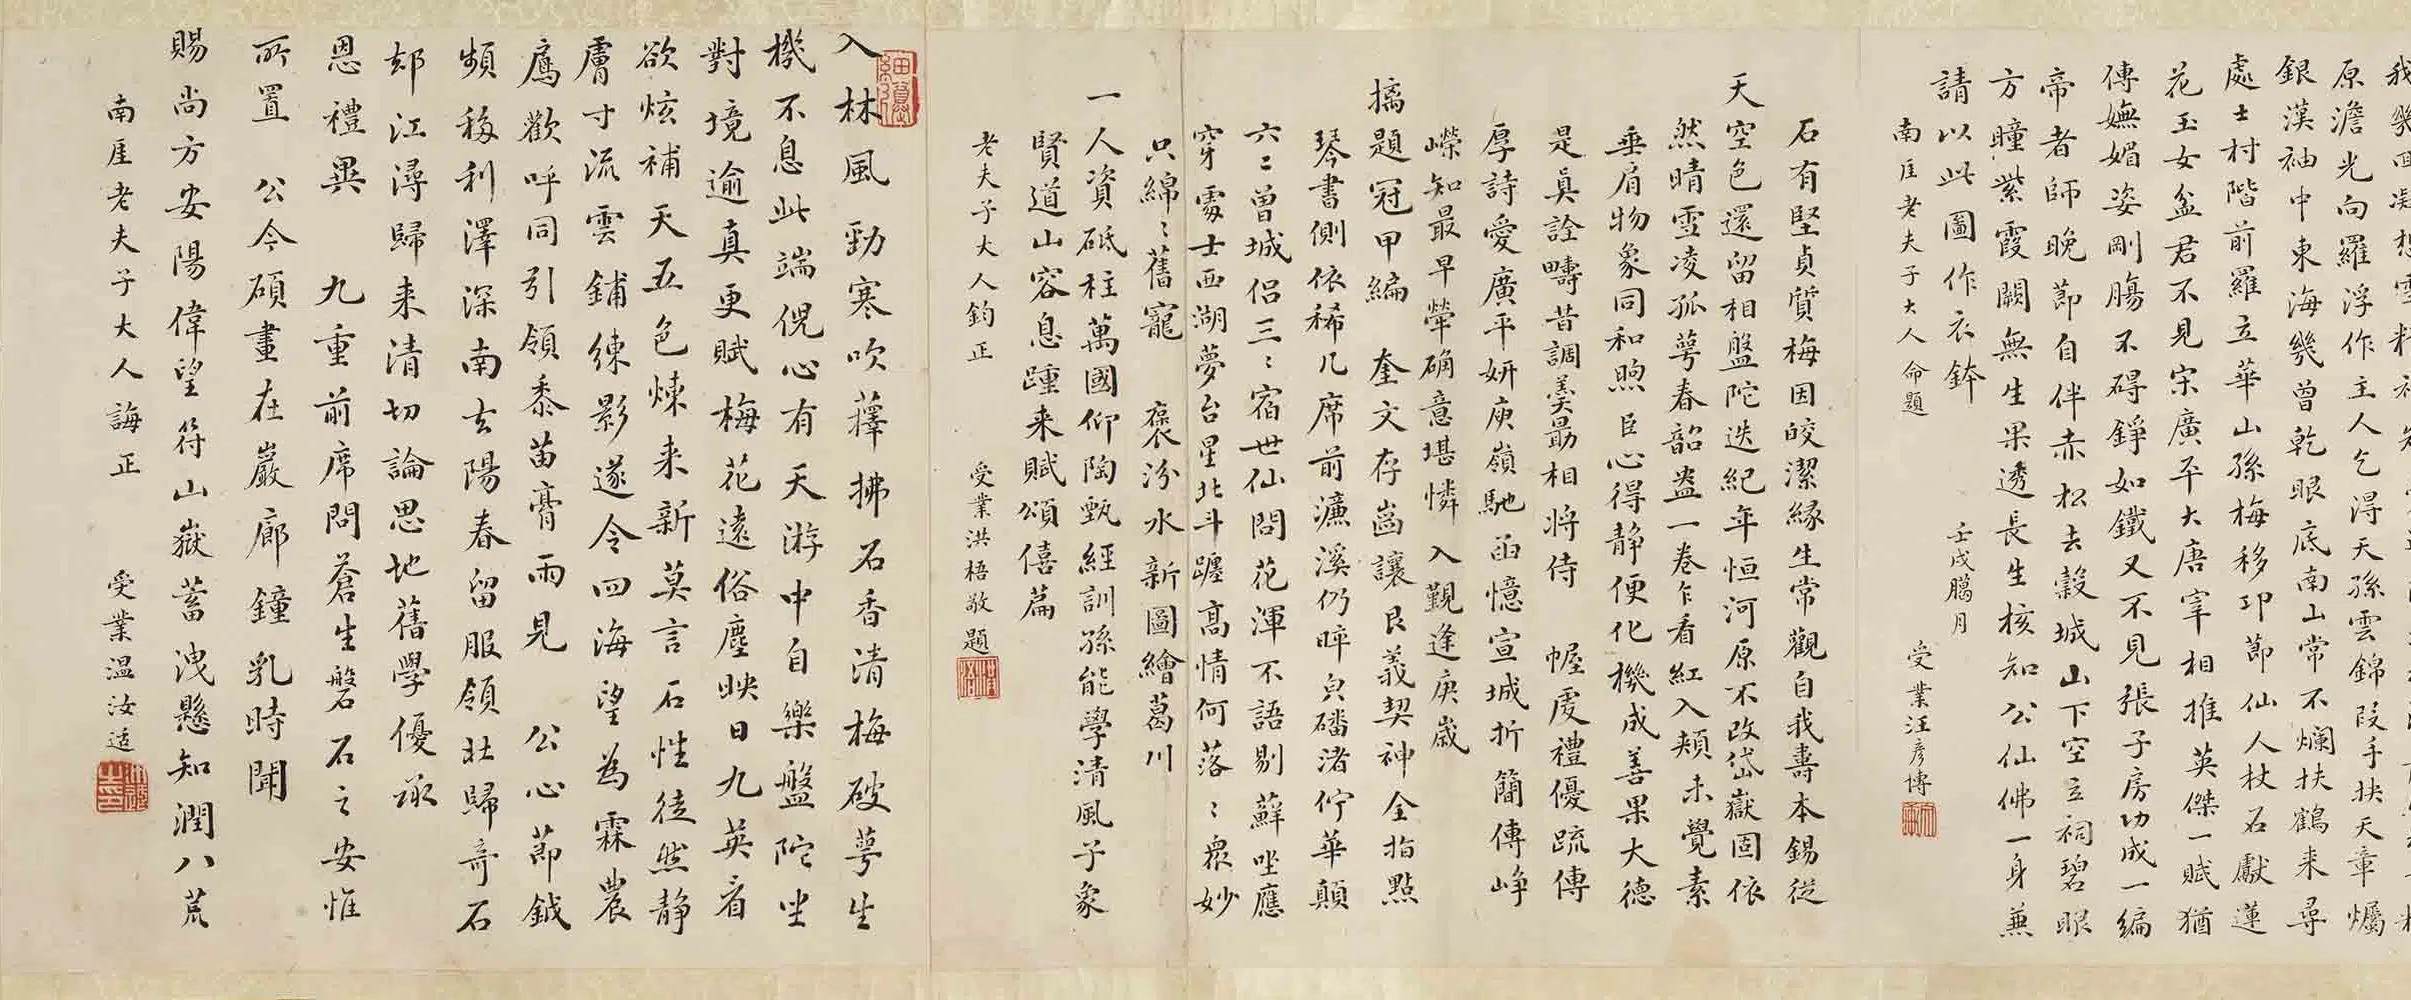 原澹光向羅浮作主人乞得天孫雲錦段手抉天章爥
銀漢袖中東海幾曾乾眼底南山常不爛扶鶴来尋
處士村階前羅立華山孫梅移邛節仙人杖石獻蓮
花玉女盆君不見宋廣平大唐宰相推英傑一賦猶
傳嫵媚姿剛腸不碍錚如鐵又不見張子房功成一編
帝者師晚節自伴赤松去穀城山下空立祠碧眼
方瞳紫霞闕無生果透長生核知公仙佛一身兼
請以此圖作衣鉢
南厓老夫子大人命題
壬戌臘月
受業汪彥博
石有堅貞質梅因皎潔緣生常觀自我壽本錫從
天空色還留相盤陀迭紀年恒河原不改岱嶽固依
然晴雪凌孤萼春韶盎一卷乍看紅入頰未覺素
垂肩物象同和煦臣心得静便化機成善果大德
是真詮疇昔調羹勗相將侍 幄虔禮優疏傅
厚詩愛廣平妍庾嶺馳函憶宣城折簡傳崢
嶸知最早犖确意堪憐 入覲逢庚歲
摛題冠甲編 奎文存崮讓艮義契神全指點
琴書側依稀几席前濂溪仍晬㒵磻渚佇華顛
六〻曾城侣三〻宿世仙問花渾不語剔蘚坐應
穿處士西湖夢台星北斗躔高情何落〻衆妙
只綿〻舊寵 褒汾水新圖繪葛川
一人資砥柱萬國仰陶甄經訓孫能學清風子象
賢道山容息踵来賦頌僖篇
老夫子大人鈞正
受業洪梧敬題
入林風勁寒吹蘀拂石香清梅破萼生
機不息此端倪心有天游中自樂盤陀坐
對境逾真更賦梅花遠俗塵映日九英看
欲炫補天五色煉来新莫言石性徒然静
膚寸流雲鋪練影遂令四海望為霖農
鴈歡呼同引領黍苗膏雨見 公心節鉞
頻移利澤深南去陽春留服領北歸奇石
却江潯歸来清切論思地舊學優承
恩禮異 九重前席問蒼生磐石之安惟
所置 公今碩畫在巖廊鐘乳時聞
賜尚方安陽偉望符山嶽蓄洩懸知潤八荒
南厓老夫子大人誨正
受業温汝适